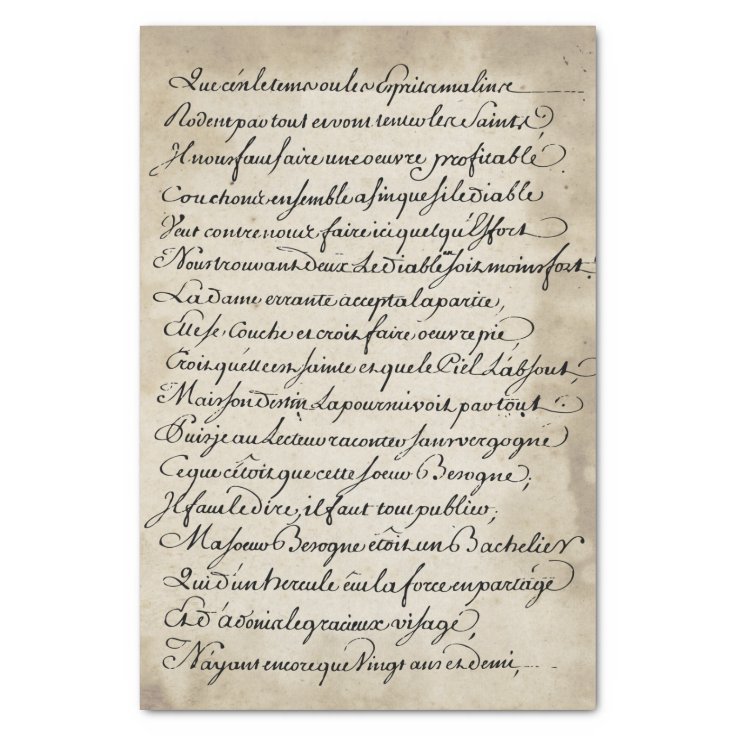 Que c'en le tems ou les Esprits malins
Rodent par tout et vont tenter les Saints,
Il nous faut faire une oeuvre profitable.
Couchons ensemble afin que si le diable
Veut contre nous faire ici quelqu'Effort
Nous trouvant deux Le diable en soit moins fort.
La dame errante accepta la partie,
Elle se Couche et croit faire oeuvre pie,
Croit qu'elle est sainte et que le Ciel L'absout,
Mais son destin La poursuivoit par tout.
Puis je au Lecteur raconter sans vergogne
Ce que c'étoit que cette soeur Besogne;
Il faut le dire, il faut tout publier,
Ma soeur Besogne étoit un Bachelier
Qui d'un hercule eut la force en partage
Et d'adonis le gracieux visage,
N'ayant encore que Vingt ans et demi,